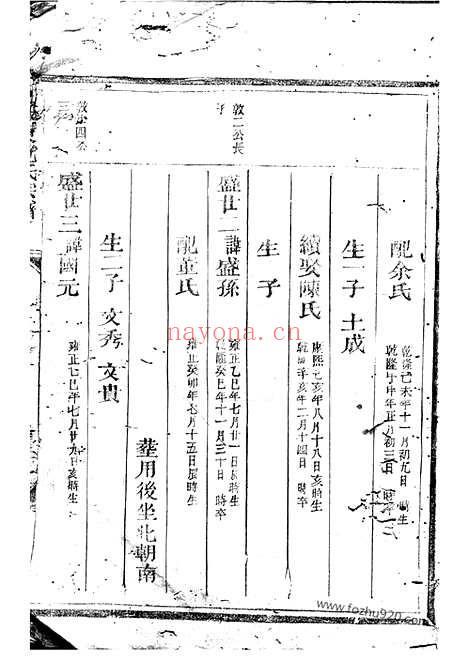 配余氏
乾隆己未年十一月初九日 時生
乾隆 年正月初三日 時卒
生一子 士成
續娶陳氏
康熙己亥年八月十八日亥時生
年二月十四日 時卒
生 子
敦二公長
盛世二諱盛孫
雍正乙巳年七月廿一日辰時生
乾隆癸巳年十一月三十日 時卒
配董氏
雍正癸卯年七月十五日辰時生
葬用後坐北朝南
生二子 文秀 文貴
敦 四公
盛世三諱國元
雍正乙巳年七月廿九日亥時生
氏宗譜
nayona.cn
www.fozhu920.com